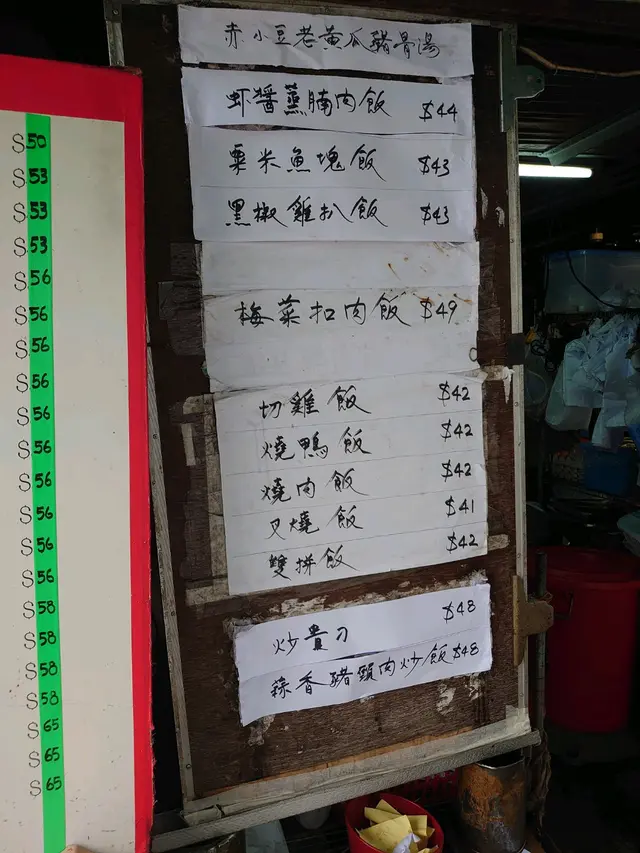 S50
S53
S53
S53
S56
S56
S56
S56
S56
S56
S56
S56
S56
S56
S58
S58
S58
S58
S65
S65
S65
赤小豆老黃瓜豬骨湯
虾醬蒸腩肉飯 $44
粟米魚塊飯 $43
黑椒雞扒飯 $43
梅菜扣肉飯 $49
切雞飯 $42
燒鴨飯 $42
燒肉飯 $42
叉燒飯 $41
雙拼飯 $42
炒貴刁 $48
蒜香豬頸肉炒飯 $48